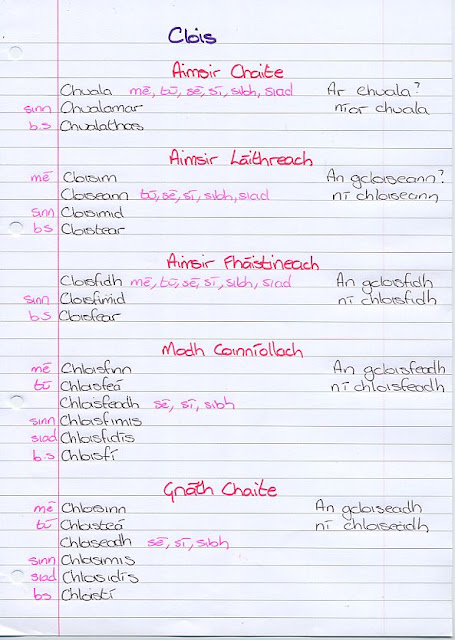 Clois
Aimsir Chaite
Chuala mé, tú, sé, sí, sibh, siad Ar chuala?
sinn Chualamar níor chuala
b.s Chualathas
Aimsir Láithreach
mé Cloisim An gcloiseann?
Cloiseann tú, sé, sí, sibh, siad ní chloiseann
sinn Cloisimid
bs Cloistear
Aimsir Fháistineach
Cloisfidh mé, tú, sé, sí, sibh, siad An gcloisfidh
sinn Cloisfimid ní chloisfidh
b.s Cloisfear
Modh Coinníollach
mé Chloisfinn An gcloisfeadh
tú Chloisfeá ní chloisfeadh
Chloisfeadh sé, sí, sibh
sinn Chloisfimis
siad Chloisfidís
b.s Chloisfí
Gnáth Chaite
mé Chloisinn An gcloiseadh
tú Chloisteá ní
Chloiseadh sé, sí, sibh
sinn Chloisimis
siad Chloisidís
bs Chloistí